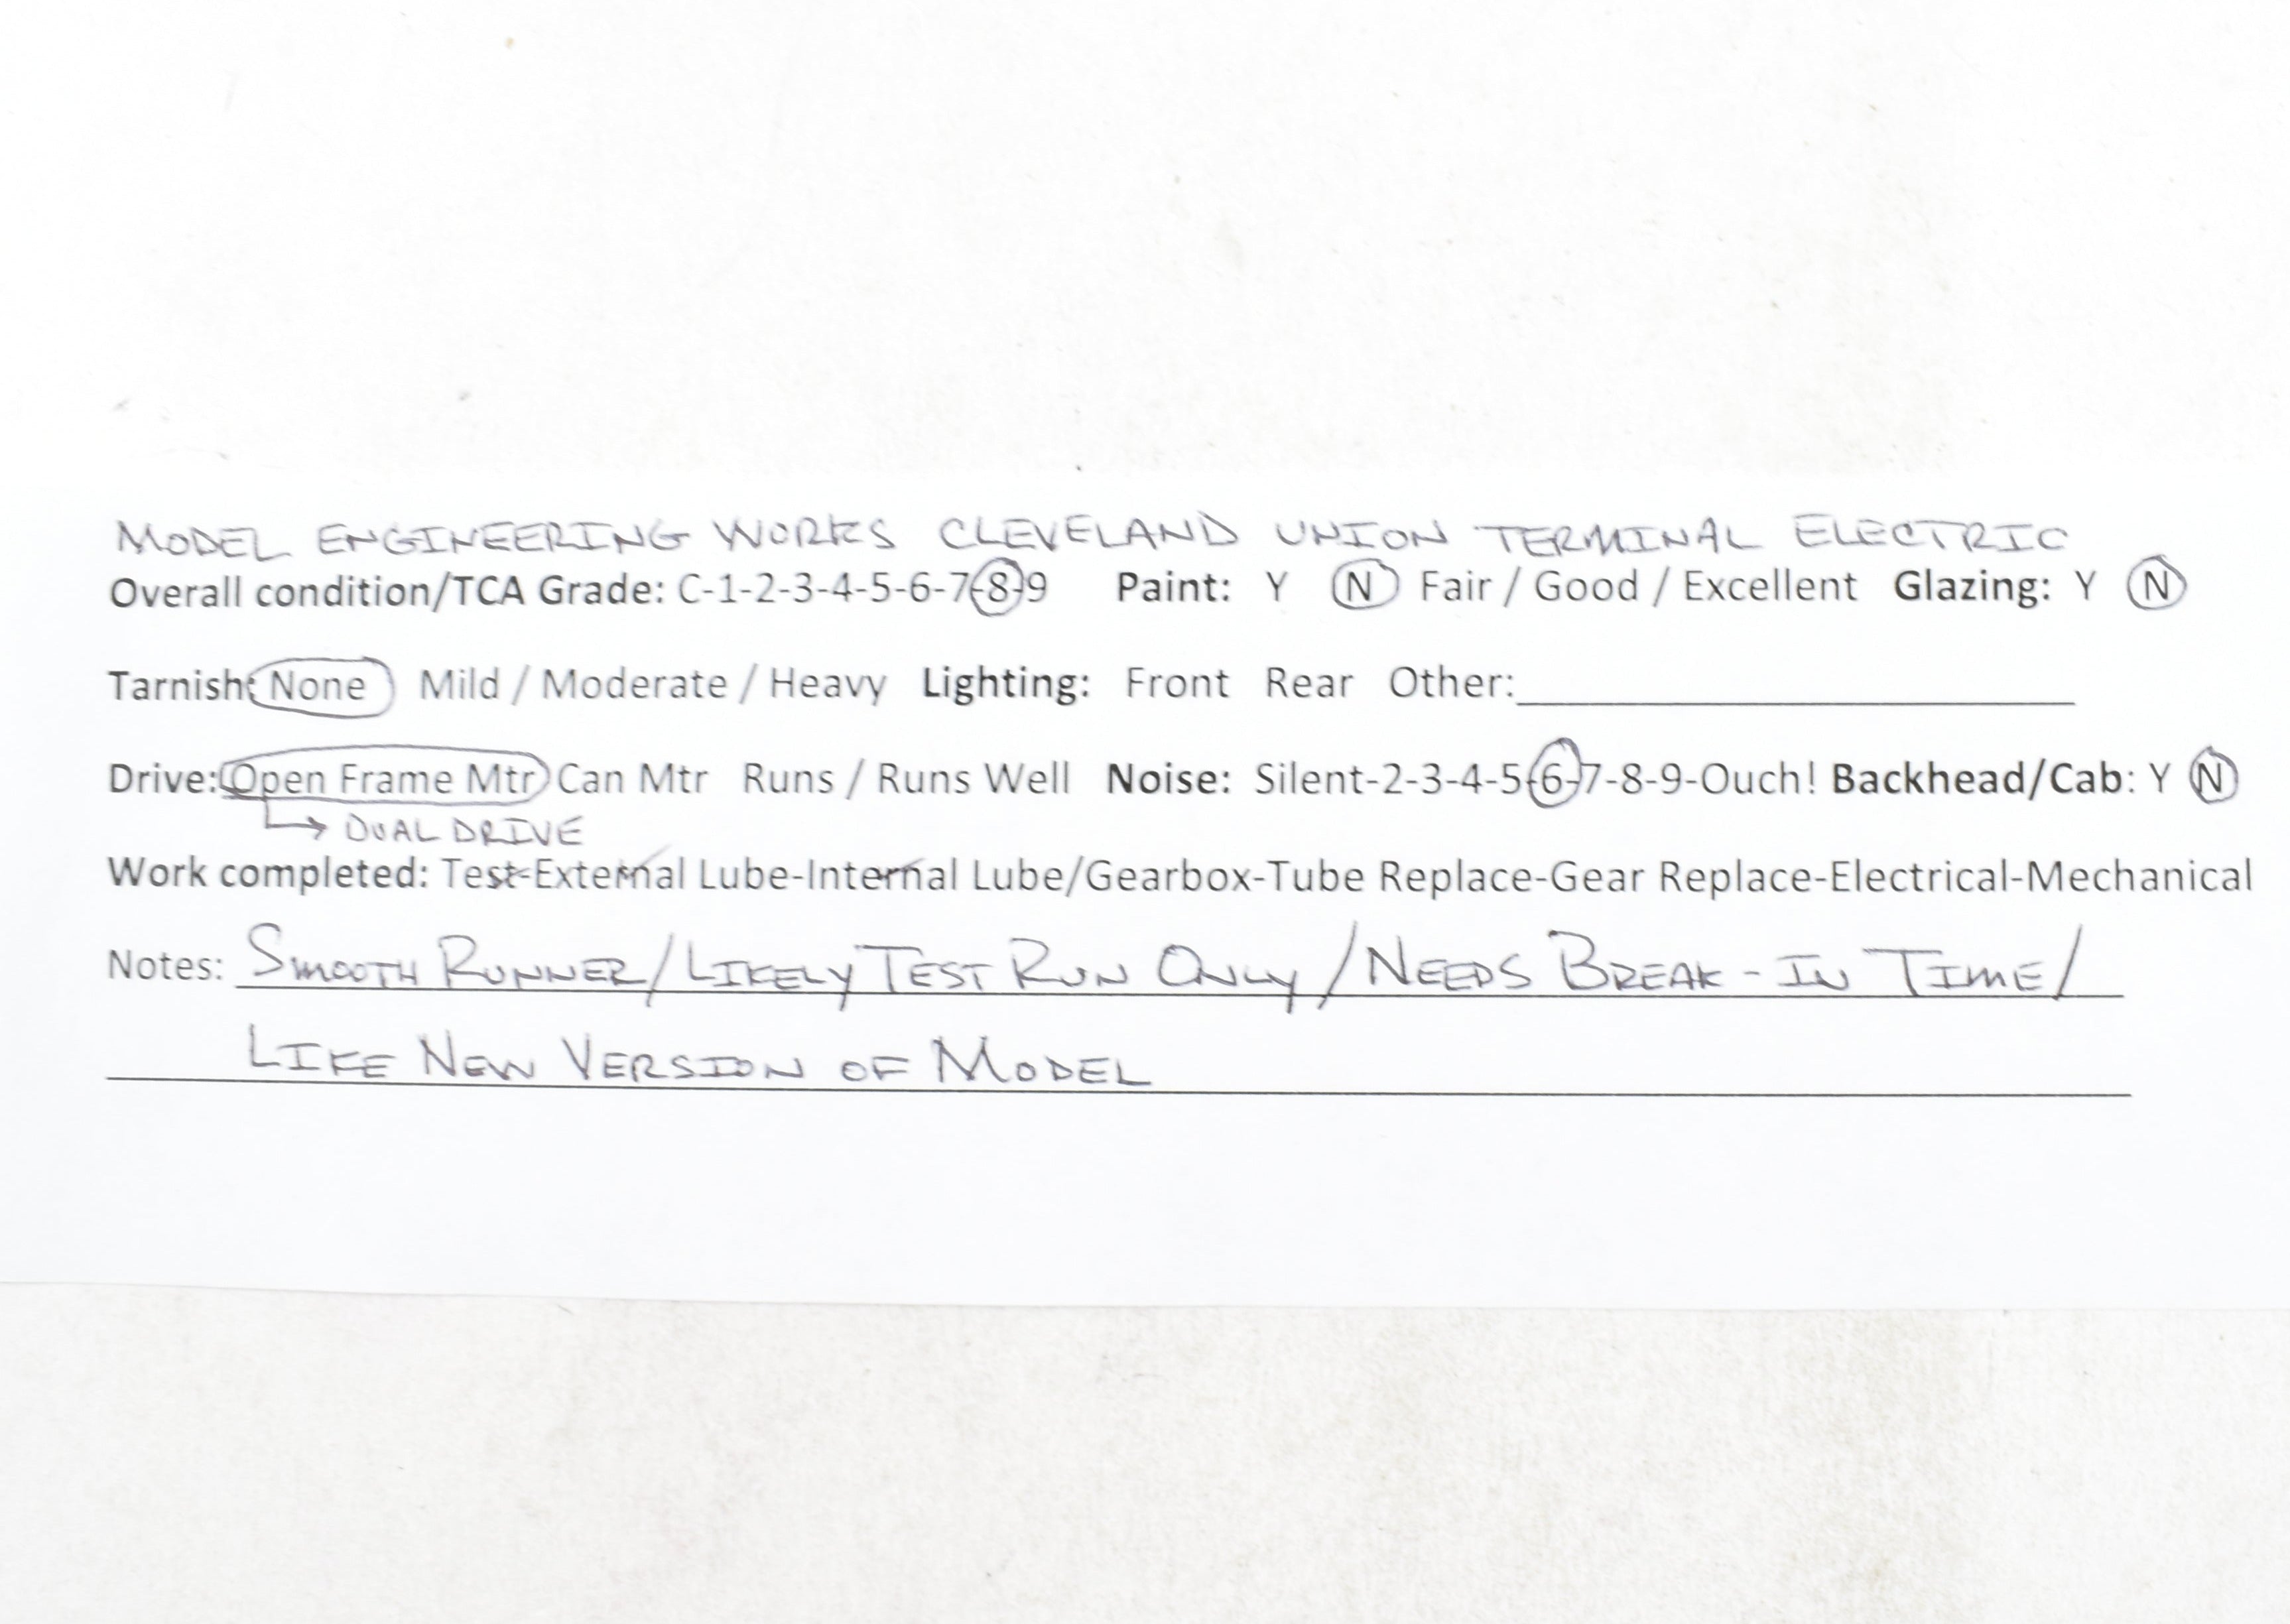 MODEL ENGINEERING WORKS CLEVELAND UNION TERMINAL ELECTRIC
Overall condition/TCA Grade: C-1-2-3-4-5-6-7-8-9 Paint: Y N Fair / Good / Excellent Glazing: Y N
Tarnish: None Mild / Moderate / Heavy Lighting: Front Rear Other:
Drive: Open Frame Mtr Can Mtr Runs / Runs Well Noise: Silent-2-3-4-5-6-7-8-9-Ouch! Backhead/Cab: Y N
DUAL DRIVE
Work completed: Test-External Lube-Internal Lube/Gearbox-Tube Replace-Gear Replace-Electrical-Mechanical
Notes: SMOOTH RUNNER/LIKELY TEST RUN ONLY/NEEDS BREAK-IN TIME/
LIKE NEW VERSION OF MODEL